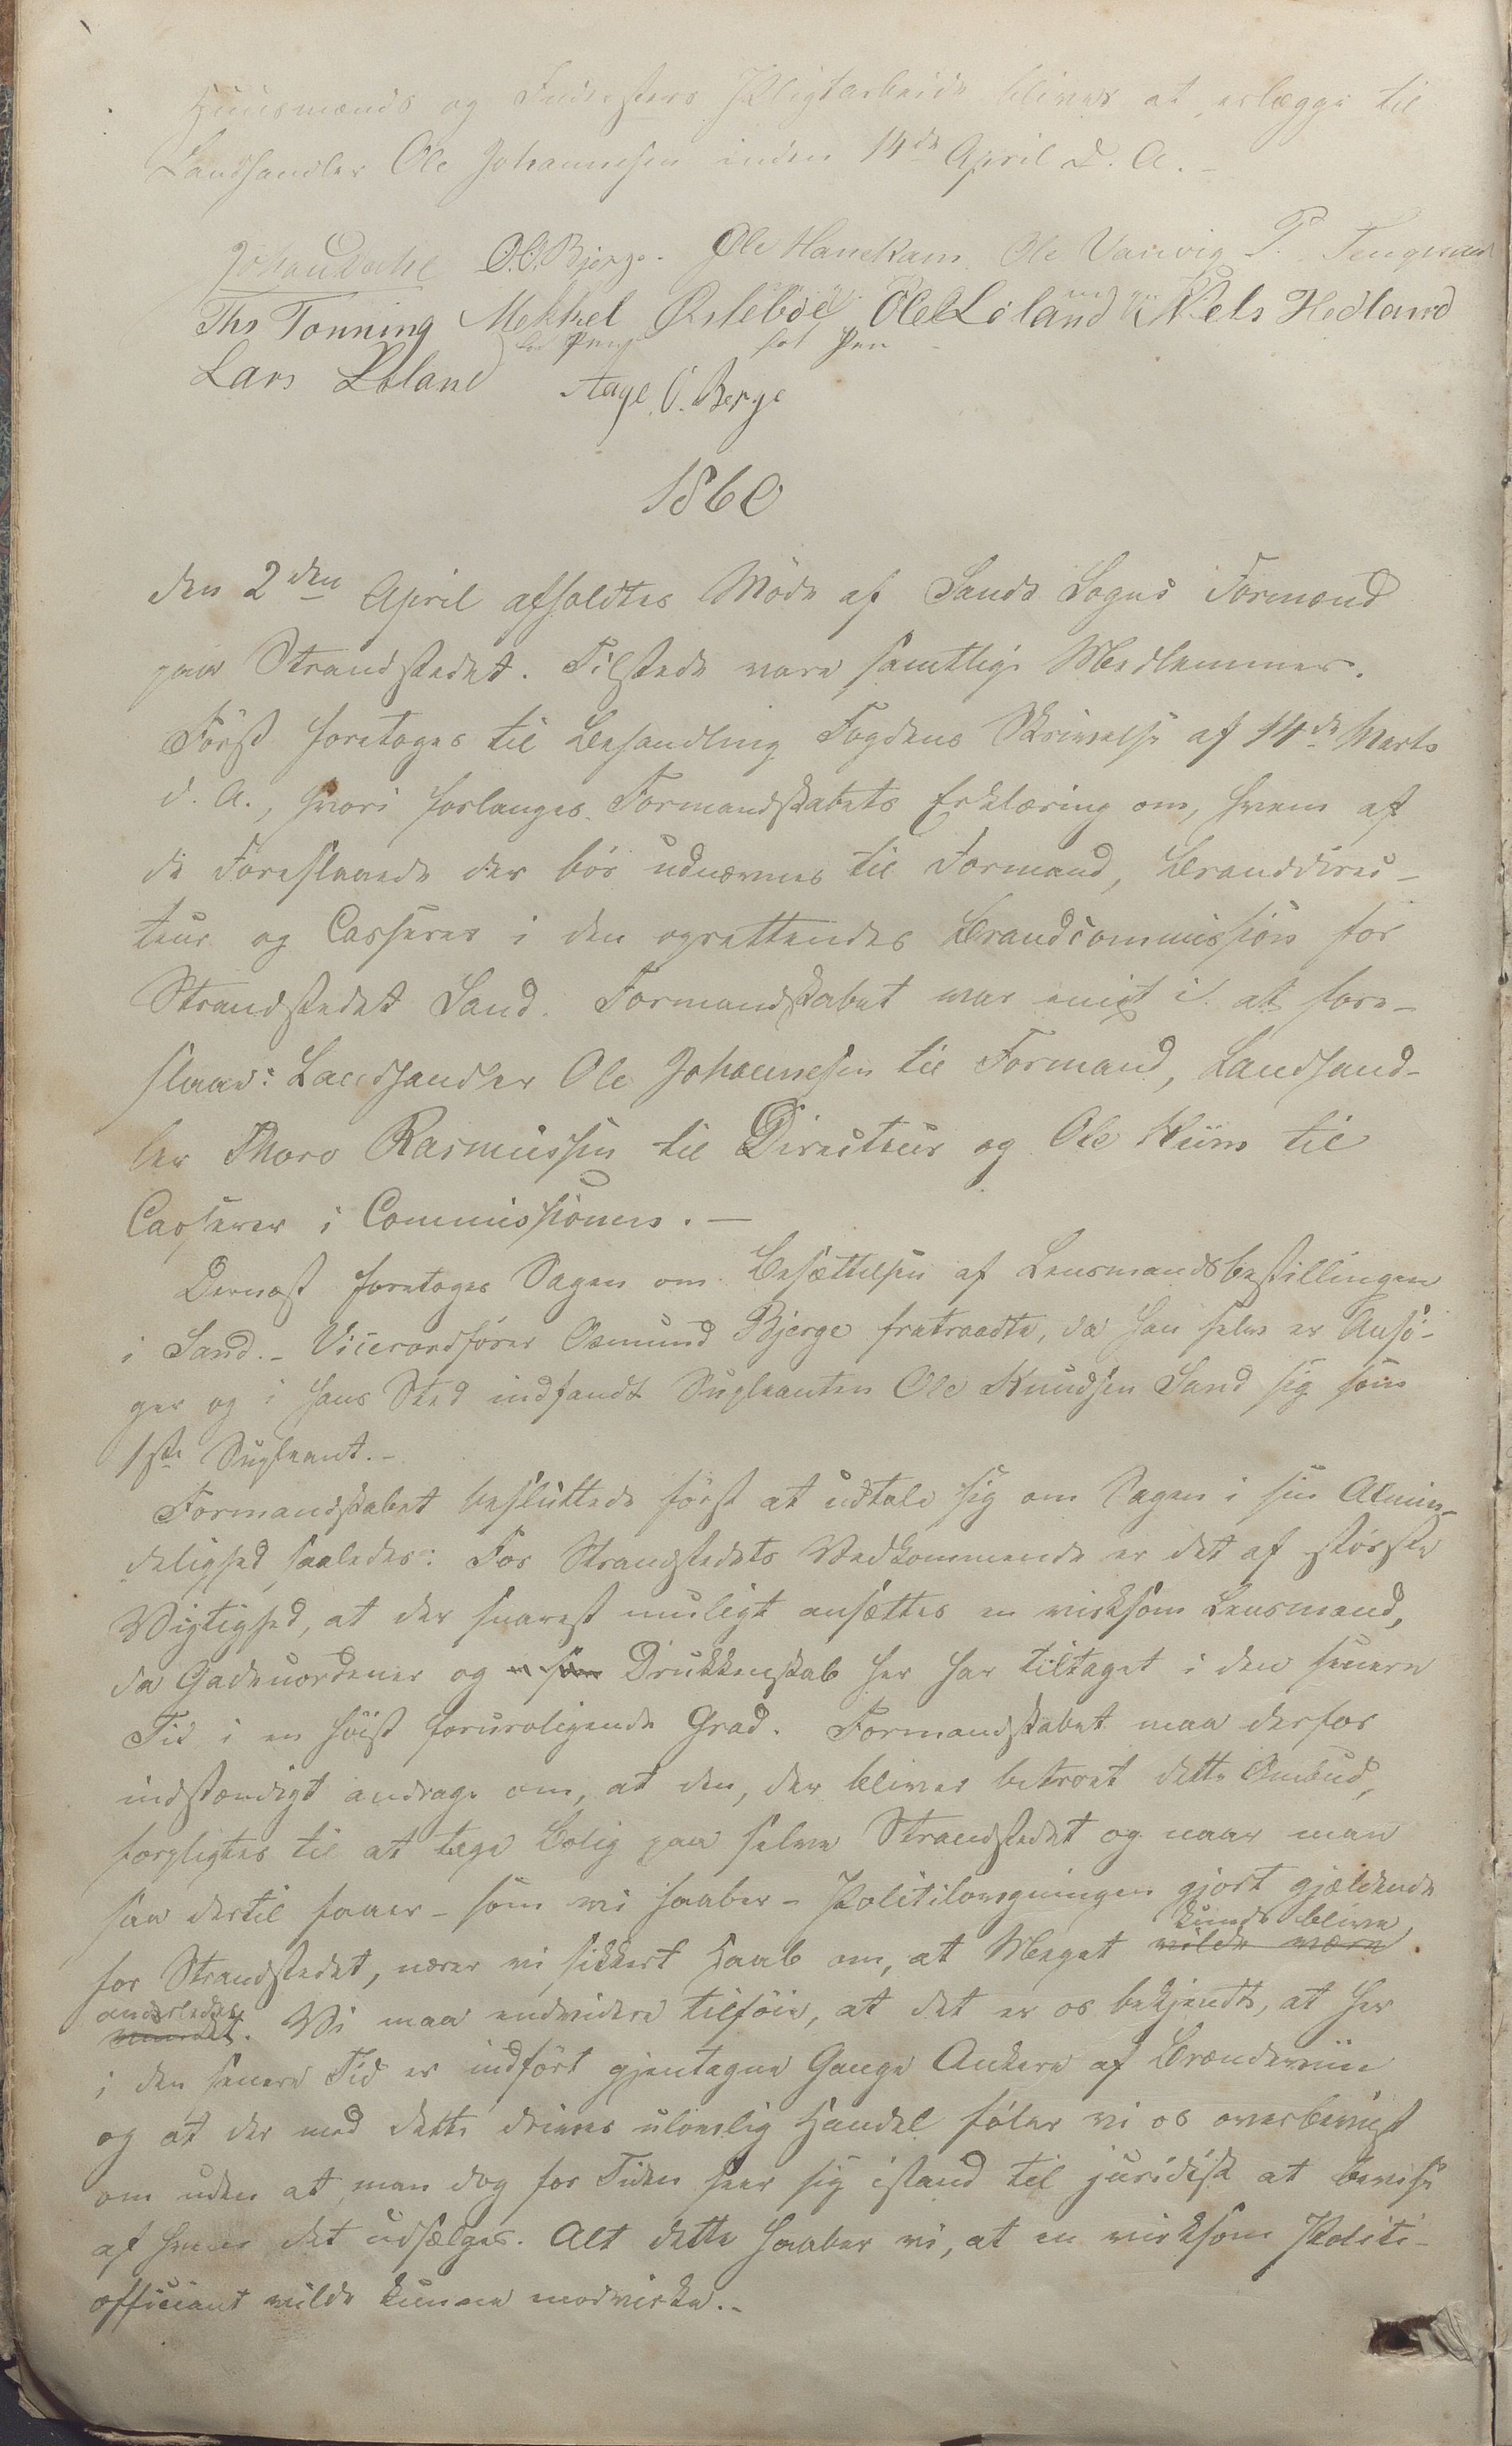 Huusmænds og Indersters Pligtarbeide bliver at erlægge til
Landhandler Ole Johannesen inden 14de April d. A. -
O.O. Bjerge. Ole Hanekam Ole Varvig
Ths Tonning Mekkel Østebøe Ole Løland Nels Hedland
Lars Løland Aage O. Berge
1860
den 2den April afholdtes Møde af Sands Sogns Formænd
paa Strandstedet. Tilstede vare samtlige Medlemmer.
Først foretoges til Behandling Fogdens Skrivelse af 14de Marts
d. A., hvori forlanges Formandskabets Erklæring om, hvem af
de Foreslaaede der bør udnævnes til Formand, Branddirec-
teur og Casserer i den oprettendes Brandcommission for
Strandstedet Sand. Formandskabet var enigt i at fore-
slaae: Landhandler Ole Johannesen til Formand, Landhand-
ler Thoro Rasmussen til Directeur og Ole Kiim til
Casserer i Commissionen. -
Dernæst foretoges Sagen om Besættelsen af Lensmandsbestillingen
i Sand. - Viceordfører Osmund Bjerge fratraadte, da han selv er Ansø-
ger og i hans Sted indfandt Supleanten Ole Knudsen Sand sig som
1ste Supleant. -
Formandskabet besluttede først at udtale sig om Sagen i sin Almin-
delighed saaledes: For Strandstedets Vedkommende er det af største
Vigtighed, at der snarest muligt ansættes en virksom Lensmand,
da Gadeuordener og Drukkenskab her har tiltaget i den senere
Tid i en høist foruroligende Grad. Formandskabet maa derfor
indstændigt andrage om, at den, der bliver betroet dette Ombud,
forpligtes til at tage Bolig paa selve Strandstedet og naar man
saa dertil faaer - som vi haaber - Politilovgivningen gjort gjældende
for Strandstedet, nærer vi sikkert Haab om, at Meget vilde være kunde blive
anderledes. Vi maa endvidere tilføie, at det er os bekjendt, at her
i den senere Tid er indført gjentagne Gange Ankere af Brændeviin
og at der med dette drives ulovlig Handel føler vi os overbeviist
om uden at man dog for Tiden seer sig istand til juridisk at bevise
af hvem det udsælges. Alt dette haaber vi, at en virksom Politi-
officiant vilde kunne modvirke. -